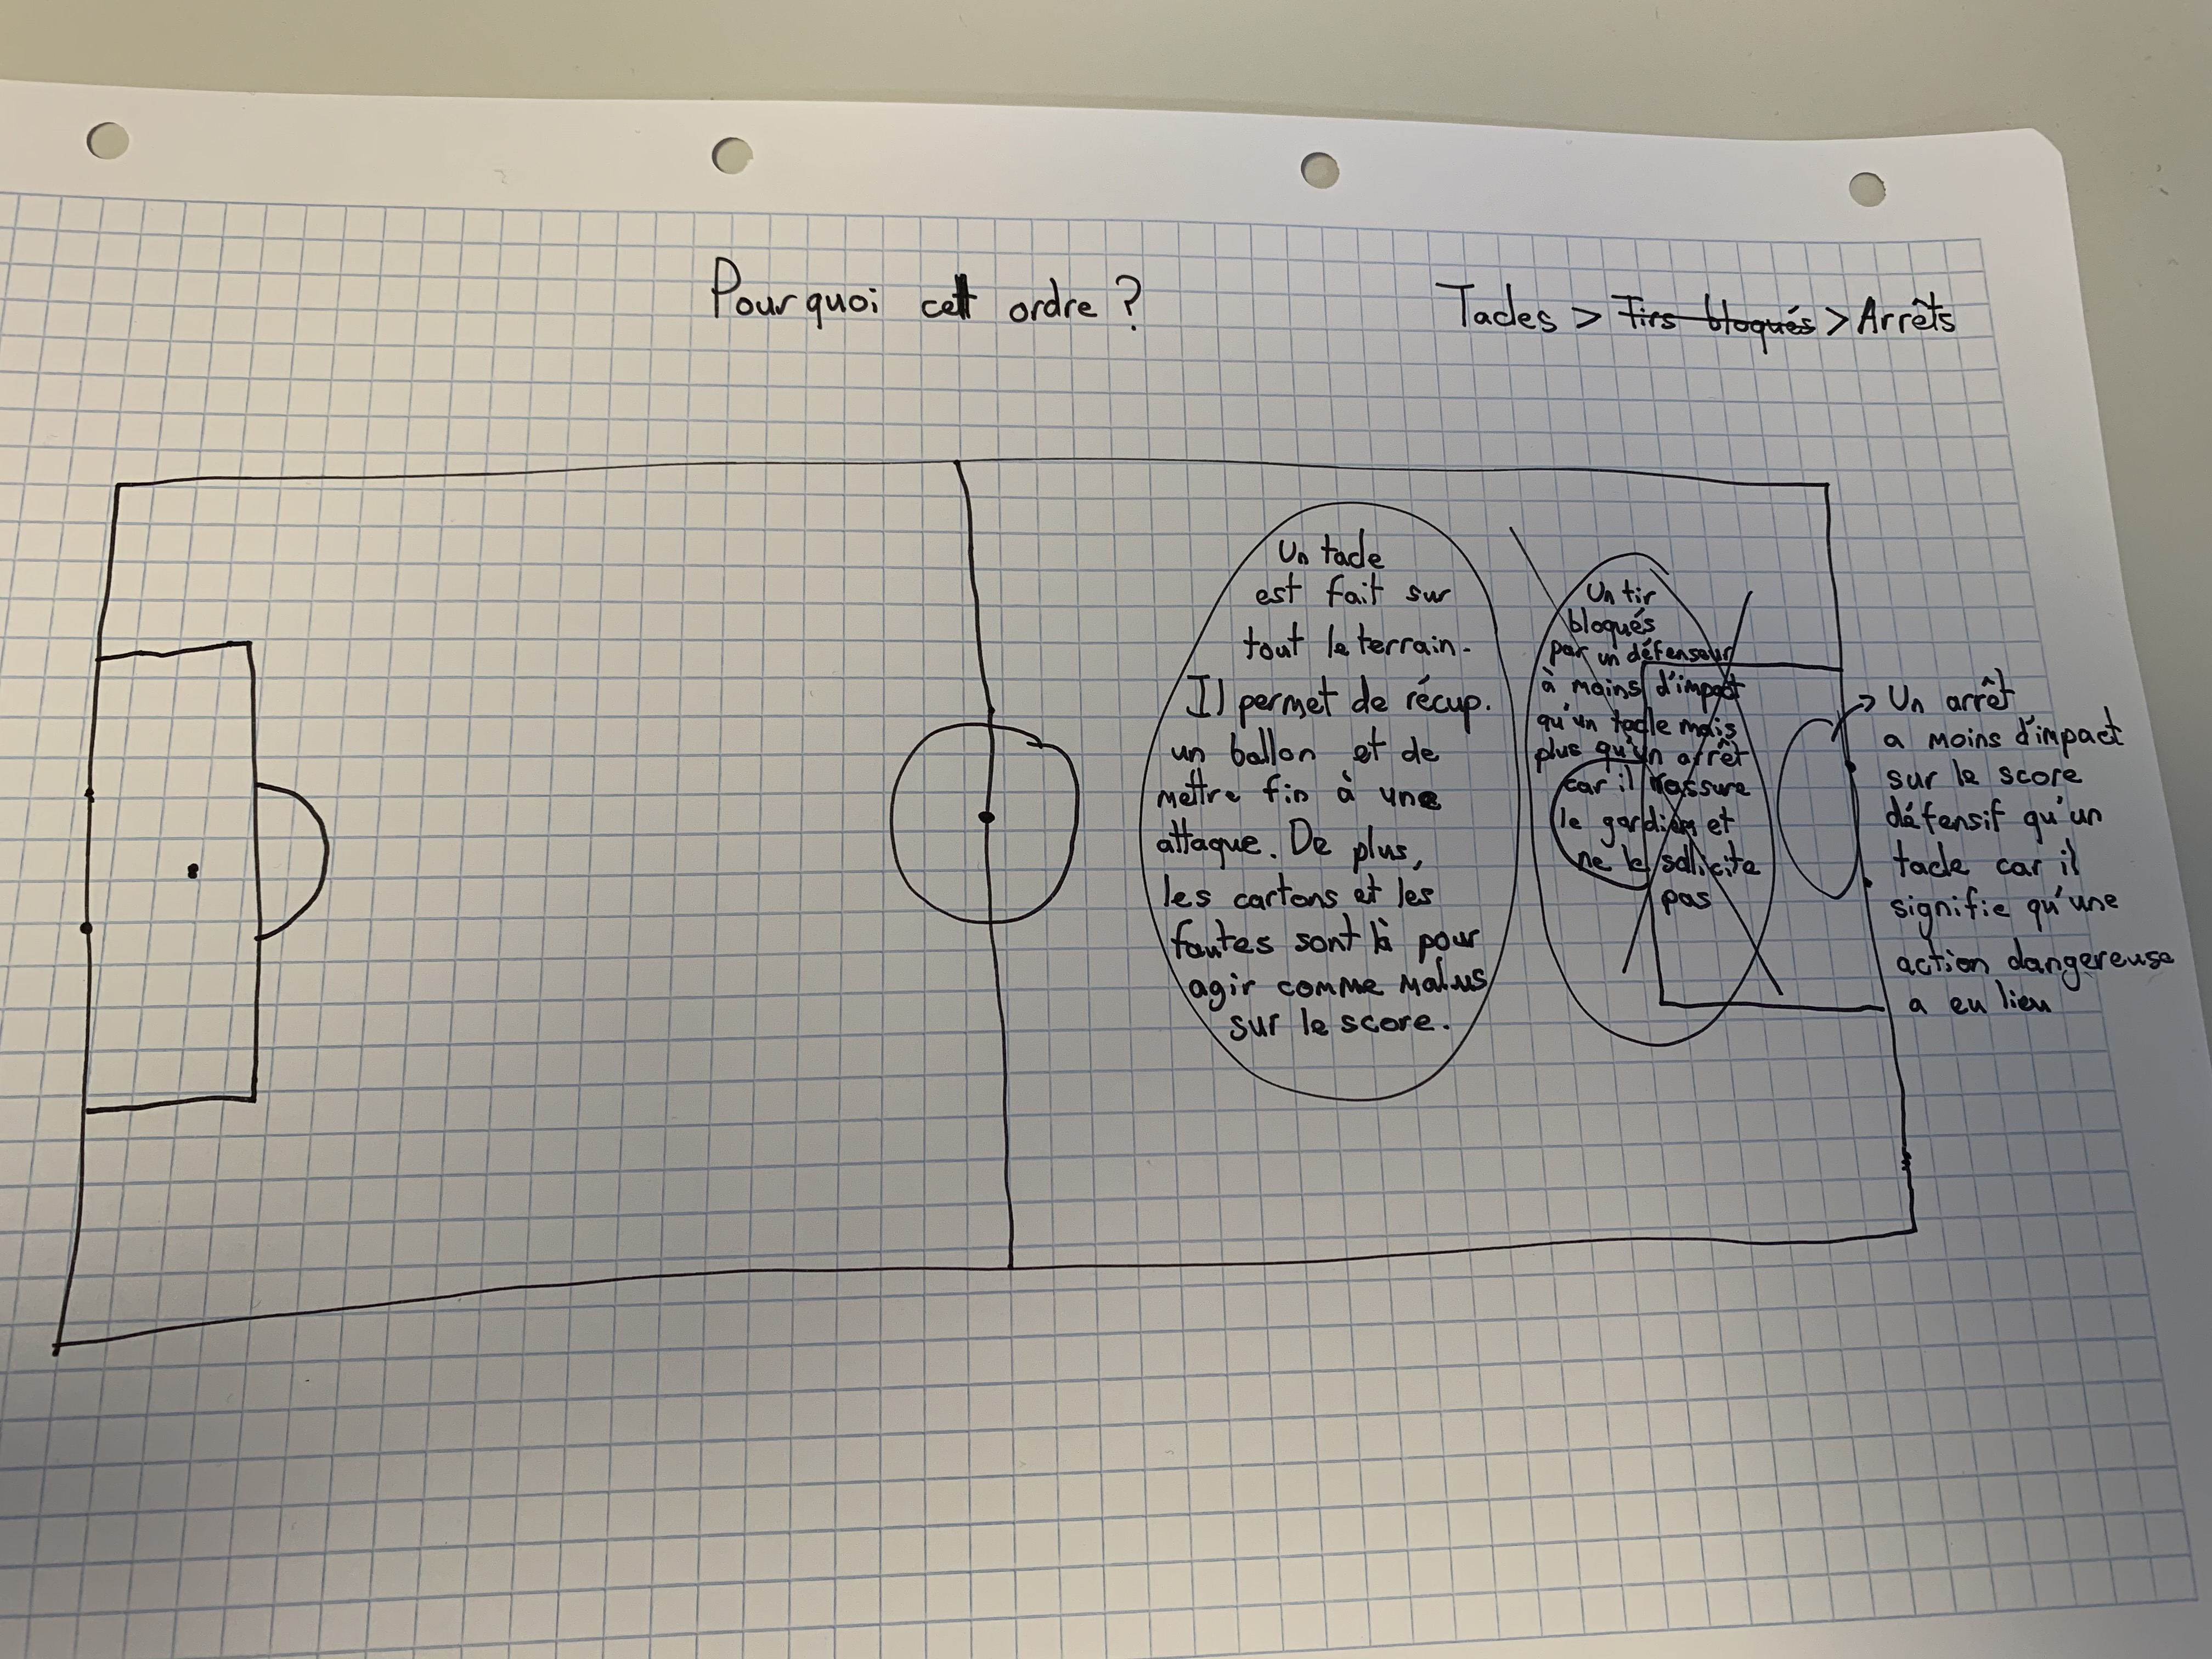 Pourquoi cet ordre ?
Tacles > Tirs bloqués > Arrêts
Un tacle
est fait sur
tout le terrain.
Il permet de récup.
un ballon et de
mettre fin à une
attaque. De plus,
les cartons et les
fautes sont là pour
agir comme malus
sur le score.
Un tir
bloqués
par un défenseur
à moins d'impact
qu'un tacle mais
plus qu'un arrêt
car il rassure
le gardien et
ne le sollicite
pas
Un arrêt
a moins d'impact
sur le score
défensif qu'un
tacle car il
signifie qu'une
action dangereuse
a eu lieu